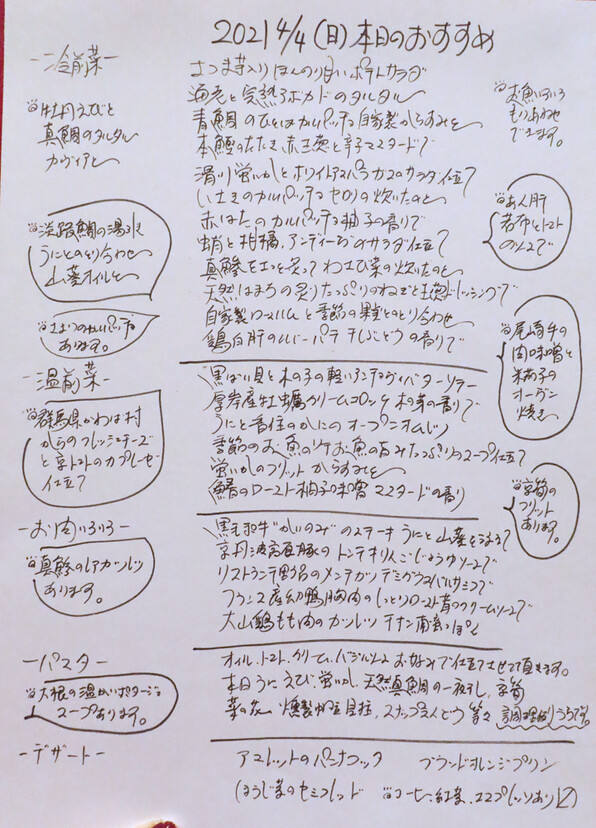 2021 4/4(日)本日のおすすめ
-冷前菜-
さつま芋入りほんのり甘いポテトサラダ
海老と完熟アボカドのタルタル
青鯛のひとはカルパッチョ自家製からすみと
本鰹のたたき 赤玉葱と辛子マスタードで
滑川蛍いかとホワイトアスパラガスのサラダ仕立て
いさきのカルパッチョセロリの炊いたのと
赤はたのカルパッチョ柚子の香りで
蛸と柑橘、アンディーブのサラダ仕立て
真鯵をさっと炙って わさび菜の炊いたのと
天然はまちの炙りたっぷりのねぎと玉葱ドレッシングで
自家製ロースハムと季節の果実とのとり合わせ
鶏白肝のレバーパテ干しぶどうの香りで
牡丹えびと
真鯛のタルタル
カヴィアと
淡路鯛の湯引き
うにとのとり合わせ
山菜オイルと
さよりのカルパッチョ
あります。
お魚いろいろ
もりあわせ
できます。
あん肝
若布とトマト
のソースで
尾崎牛の
肉味噌と
米茄子の
オーブン
焼き
-温前菜-
黒ばい貝と木の子の軽いアンチョヴィバターソテー
厚岸産牡蠣クリームコロッケ 木の芽の香りで
うにと香住のかにのオープンオムレツ
季節のお魚のソテお魚の旨みたっぷりのスープ仕立て
蛍いかのフリット からすみと
鰆のロースト柚子味噌マスタードの香り
群馬県かわば村
からのフレッシュチーズ
と京トマトのカプレーゼ
仕立て
京筍の
フリット
あります。
-お肉いろいろ-
黒毛和牛"かいのみ"のステーキ うにと山菜をそえて
京丹波高原豚のトンテキりんごじょうゆソースで
リストランテ野呂のメンチカツ デミグラスバルサミコで
フランス産幼鴨胸肉のしっとりロースト 青つぶクリームソースで
大山鶏もも肉のカツレツ チキン南蛮っぽく
真鯵のレアカツレツ
あります。
-パスタ-
オイル、トマト、クリーム、バジルソース お好みで仕立てさせて頂きます。
本日うに えび、蛍いか、天然真鯛の一夜干し、京筍
菜の花 燻製帆立貝柱、スナップえんどう等々 調理場ごころです。
大根の温かいポタージュ
スープあります。
-デザート-
アマレットのパンナコッタ ブラッドオレンジプリン
ほうじ茶のセミフレッド コーヒー、紅茶、エスプレッソあります